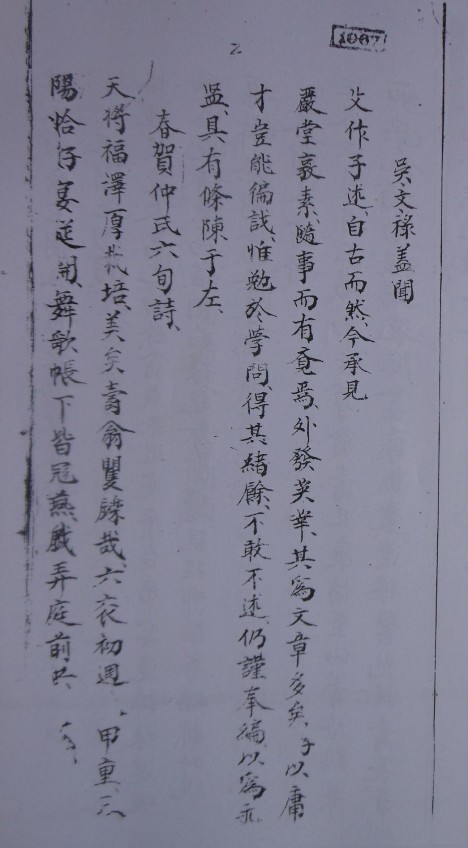 1067
2
吴文祿盖聞
父作子述、自古而然、今承見
嚴堂敦素、隨事而有竟焉、外發英華、其爲文章多矣、予以庸
才豈能徧誌、惟勉於學問、得其緒餘、不敢不述、仍謹奉徧以爲
具有條陳于左、
春賀仲氏六旬詩、
天將福澤厚栽培、美矣壽翁矍鑠哉、六袠初週甲重
陽恰好宴筵開、舞歌帳下皆冠戲弄庭前